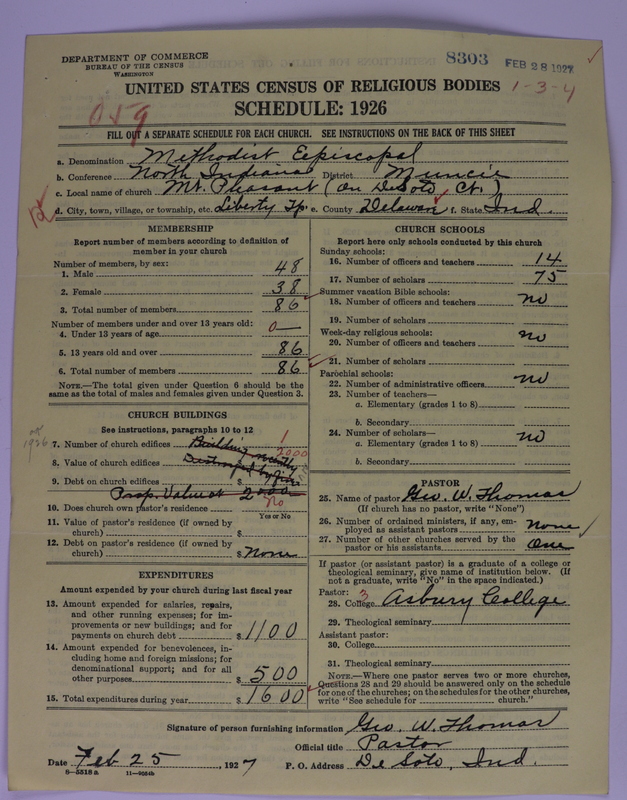 DEPARTMENT OF COMMERCE
BUREAU OF THE CENSUS
WASHINGTON
8303 FEB 28 1927
UNITED STATES CENSUS OF RELIGIOUS BODIES 1-3-4
SCHEDULE: 1926
059
FILL OUT A SEPARATE SCHEDULE FOR EACH CHURCH. SEE INSTRUCTIONS ON THE BACK OF THIS SHEET
a. Denomination Methodist Episcopal
b. Conference North Indiana District Muncie
c. Local name of church Mt. Pleasant (on DeSoto Ct.)
d. City, town, village, or township, etc. Liberty Tp. e. County Delaware f. State Ind.
MEMBERSHIP
Report number of members according to definition of
member in your church
Number of members, by sex:
1. Male 48
2. Female 38
3. Total number of members 86
Number of members under and over 13 years old:
4. Under 13 years of age 0
5. 13 years old and over 86
6. Total number of members 86
NOTE.—The total given under Question 6 should be the
same as the total of males and females given under Question 3.
CHURCH BUILDINGS
See instructions, paragraphs 10 to 12
ok
1926
7. Number of church edifices Building recently 1
8. Value of church edifices Destroyed by fire 2000
9. Debt on church edifices $
Prop. Value at 2000
10. Does church own pastor's residence no
Yes or No
11. Value of pastor's residence (if owned by
church) $
12. Debt on pastor's residence (if owned by
church) $ None
EXPENDITURES
Amount expended by your church during last fiscal year
13. Amount expended for salaries, repairs,
and other running expenses; for im-
provements or new buildings; and for
payments on church debt $ 1100
14. Amount expended for benevolences, in-
cluding home and foreign missions; for
denominational support; and for all
other purposes $ 500
15. Total expenditures during year $ 1600
CHURCH SCHOOLS
Report here only schools conducted by this church
Sunday schools:
16. Number of officers and teachers 14
17. Number of scholars 75
Summer vacation Bible schools:
18. Number of officers and teachers no
19. Number of scholars
Week-day religious schools:
20. Number of officers and teachers no
21. Number of scholars
Parochial schools:
22. Number of administrative officers no
23. Number of teachers—
a. Elementary (grades 1 to 8)
b. Secondary
24. Number of scholars—
a. Elementary (grades 1 to 8) no
b. Secondary
PASTOR
25. Name of pastor Geo. W. Thomas
(If church has no pastor, write "None")
26. Number of ordained ministers, if any, em-
ployed as assistant pastors none
27. Number of other churches served by the
pastor or his assistants One
If pastor (or assistant pastor) is a graduate of a college or
theological seminary, give name of institution below. (If
not a graduate, write "No" in the space indicated.)
Pastor: 3
28. College Asbury College
29. Theological seminary
Assistant pastor:
30. College
31. Theological seminary
NOTE.—Where one pastor serves two or more churches,
Questions 28 and 29 should be answered only on the schedule
for one of the churches; on the schedules for the other churches,
write "See schedule for church."
Signature of person furnishing information Geo. W. Thomas
Official title Pastor
Date Feb 25, 1927 P. O. Address De Soto, Ind.
8—5518a 11—9354b